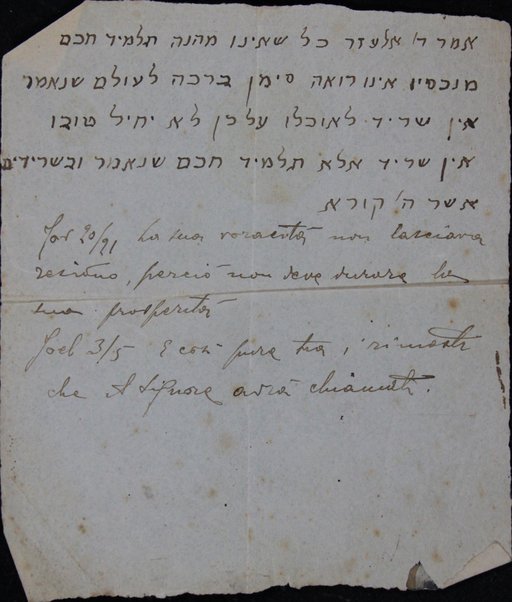 אמר ר' אלעזר כל שאינו מהנה תלמיד חכם
מנכסיו אינו רואה סימן ברכה לעולם שנאמר
אין שריד לאוכלו על כן לא יחיל טובו
אין שריד אלא תלמיד חכם שנאמר ובשרידים
אשר ה' קורא
Job 20/21 La sua voracità non lasciava
residuo, perciò non deve durare la
sua prosperità
Joel 3/5 E così pure tra i rimasti
che il Signore avrà chiamati.